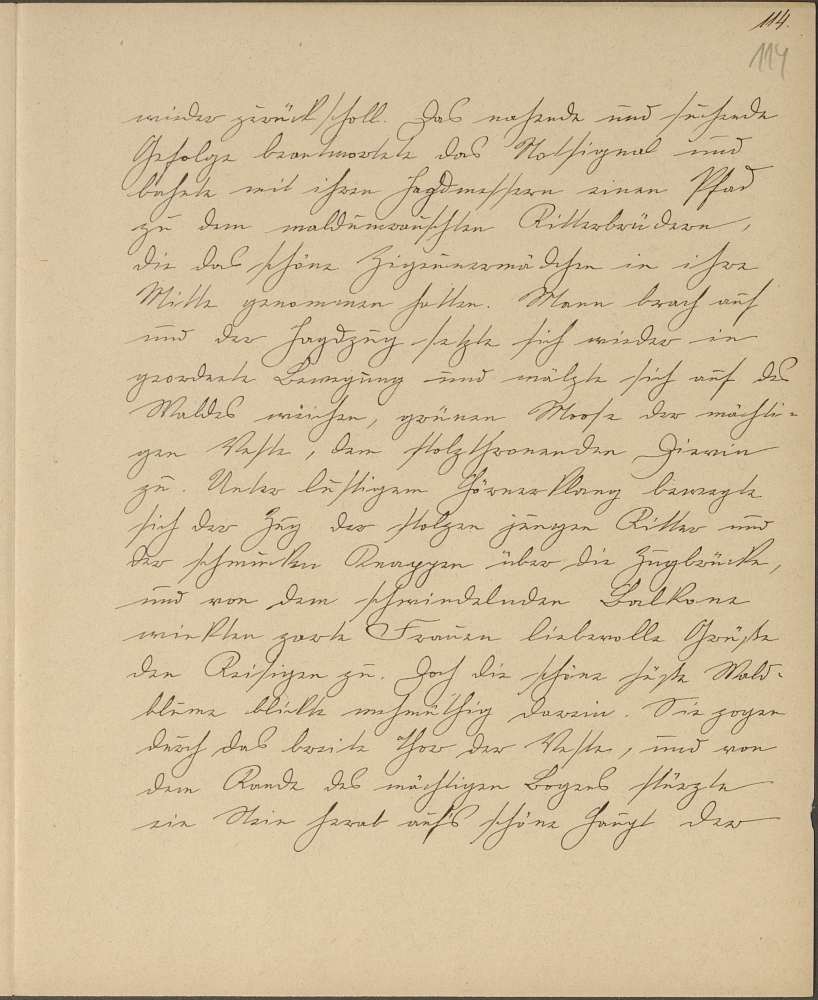 114.
114
wieder zurück scholl. Das nahende und suchende
Gefolge beantwortete das Notsignal und
bahnte mit ihren Jagdmessern einen Pfad
zu dem waldumrauschten Ritterbrüdern,
die das schöne Zigeunermädchen in ihre
Mitte genommen hatten. Mann brach auf
und der Jagdzug setzte sich wieder in
geordnete Bewegung und wälzte sich auf des
Waldes weichen, grünen Moose der mächti-
gen Veste, dem stolzthronenden
zu. Unter lustigem Hörnerklang bewegte
sich der Zug der stolzen jungen Ritter und
der schmucken Knappen über die Zugbrücke,
und von dem schwindelnden Balkone
winkten zarte Frauen liebevolle Grüße
den Reisigen zu. Doch die schöne süße Wald-
blume blickte wehmüthig darein. Sie zogen
durch das breite Thor der Veste, und von
dem Rande des mächtigen Bogens stürzte
ein Stein herab auf's schöne Haupt der